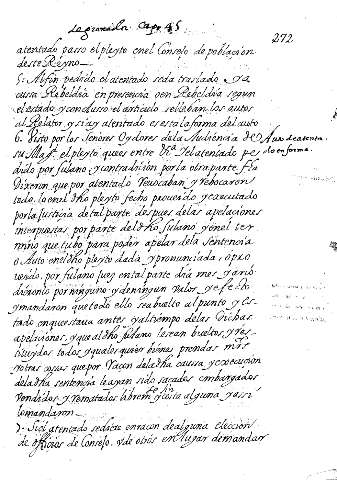 272
atentado passo el pleyto en el Consejo de poblacion
deste Reyno
5. A fin pedido el atentado se da traslado y a
causa Rebeldia en presencia o en Rebeldia segun
el estado y concluso el articulo se lleban los autos
al Relator, y si ay atentado es esta la forma del auto
6. Visto por los Señores Oydores de la Audiencia de
Auto de atenta
su Mag. el pleyto que es entre
el atentado pe
do en forma
dido por fulano y contradicion por la otra parte
Dixeron que por atentado Revocaban y Rebocaron
todo lo en el dho pleyto fecho proveido y executado
por la Justicia de tal parte despues de las apelaciones
interpuestas por parte del dho fulano y en el ter
mino que tubo para poder apelar de la sentencia
o Auto en el dho pleyto dada, y pronunciada, o pro
veido, por fulano juez en tal parte dia mes y año
dieronlo por ninguno y de ningun valor y efecto
y mandaron que todo ello sea buelto al punto y es
tado en que estava antes y al tiempo de las dichas
apelaciones, y que al dho fulano le sean bueltos, y res
tituydos todos y qualesquier bienes prendas mrs
y otras cosas que por raçon de la dha causa y execucion
de la dha sentencia le ayan sido sacados embargados
vendidos y rematados librem.te y sin costa alguna y assi
lo mandaron
7. Si el atentado se dice en raçon de alguna eleccion
de officios de Consejo, v de otros en lugar de mandar